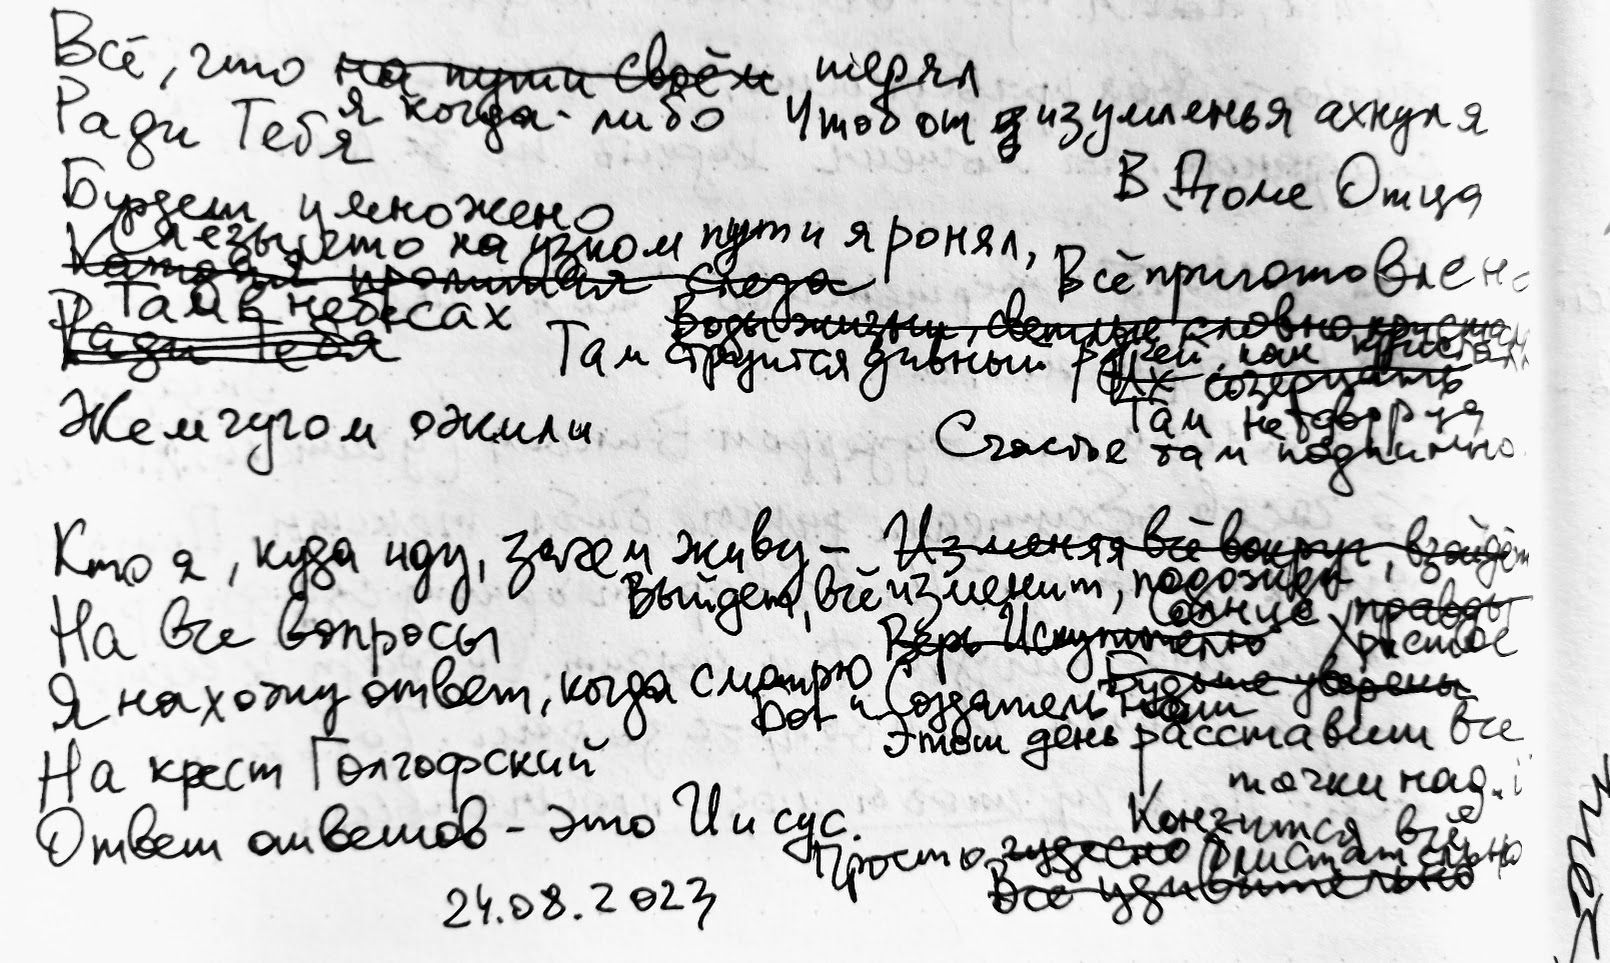 Всё, что на пути своём терял
Ради Тебя я когда-либо
Чтоб от изумленья ахнул я
В Доме Отца
Будет умножено
Слезы, что на узком пути я ронял,
слеза
Всё приготовлено
Там в небесах
Ради Тебя
Воды жизни, светлые словно
Там струится дивный ручей, как кристалл
Их созерцать
Жемчугом ожили
Там нет дворца
Счастье там подлинно
Кто я, куда иду, зачем живу –
Изменяя всё вокруг, взойдёт
Выйдет, всё изменит, подожди
Солнце правды
На все вопросы
Верь Искупителю Христос
Я нахожу ответ, когда смотрю
Будьте уверены
Бог и Создатель наш
Этот день расставит все
На крест Голгофский
точки над i
Ответ ответов – это Иисус.
Кончится всё
Просто чудесно блистательно
Всё удивительно
24.08.2023